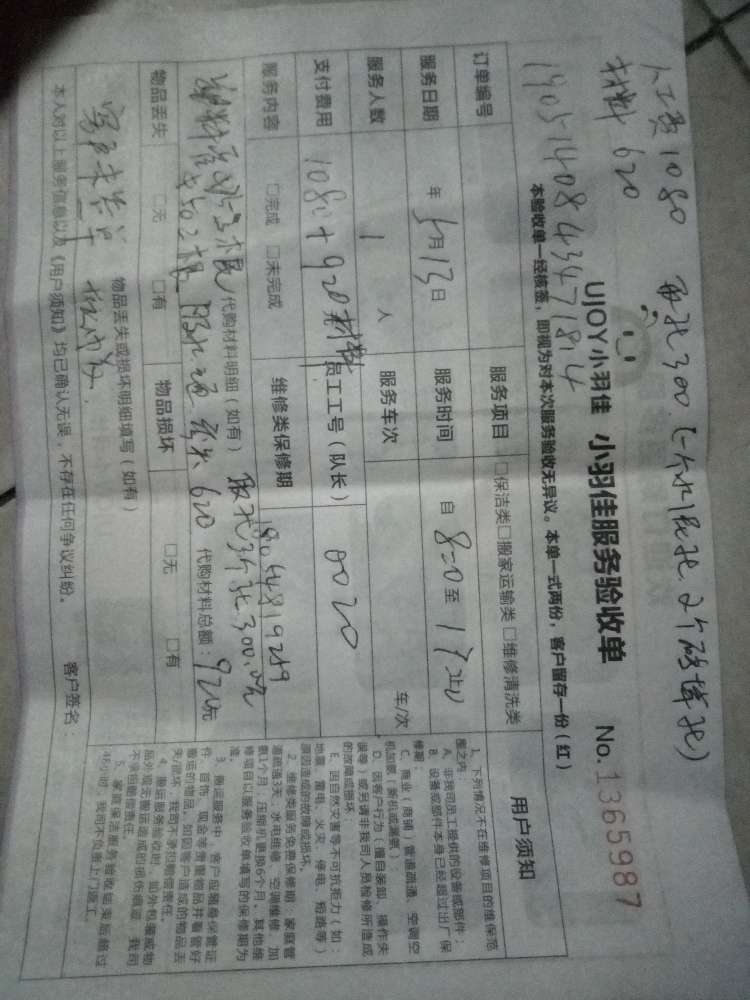 人工费1080 取孔300（一个水泥孔 2个砖墙孔）
材料 620
UJOY小羽佳 小羽佳服务验收单 No.1365987
本验收单一经核签，即视为对本次服务验收无异议。本单一式两份，客户留存一份（红）
订单编号 服务项目 □保洁类□搬家运输类□维修清洗类
服务日期 年5月13日 服务时间 自 8:20至 17
服务人数 1 人 服务车次 车/次
支付费用 1080+920材料 员工工号（队长） 0020
服务内容 □完成 □未完成 维修类保修期 18044819289
代购材料明细（如有）
620 代购材料总额：920元
物品丢失 □无 □有 物品损坏 □无 □有
物品丢失或损坏明细填写（如有）
本人对以上服务信息以及《用户须知》均已确认无误，不存在任何争议纠纷。 客户签名
用户须知
1、下列情况不在维修项目的维保范
围之内：
A、非我司员工提供的设备或部件；
B、设备或部件本身已经超过出厂保
修期
C、商业（商铺）管道疏通、空调空
机加氨（新机或漏氨）；
D、因客户行为（擅自装卸、操作失
误等）或另请非我司人员检修所造成
的故障或损坏
E、因自然灾害等不可抗拒力（如：
地震、雷电、火灾、停电、短路等）
原因造成的故障或损坏。
2、维修类服务免费保修期：家庭管
道疏通3天；水电维修、空调维修、加
氨1个月；压缩机更换6个月。其他维
修项目以服务验收单填写的保修期为
准。
3、搬运服务中，客户应随身保管证
件、首饰、现金等贵重物品并看管好
搬运的物品。如因客户造成的物品丢
失/损坏，我司不承担赔偿责任。
4、搬运服务验收时，如外包装或物
品外观无搬运造成的损伤痕迹，我司
不承担赔偿责任。
5、家庭保洁服务验收结束后超过
48小时，我司不负责上门返工。